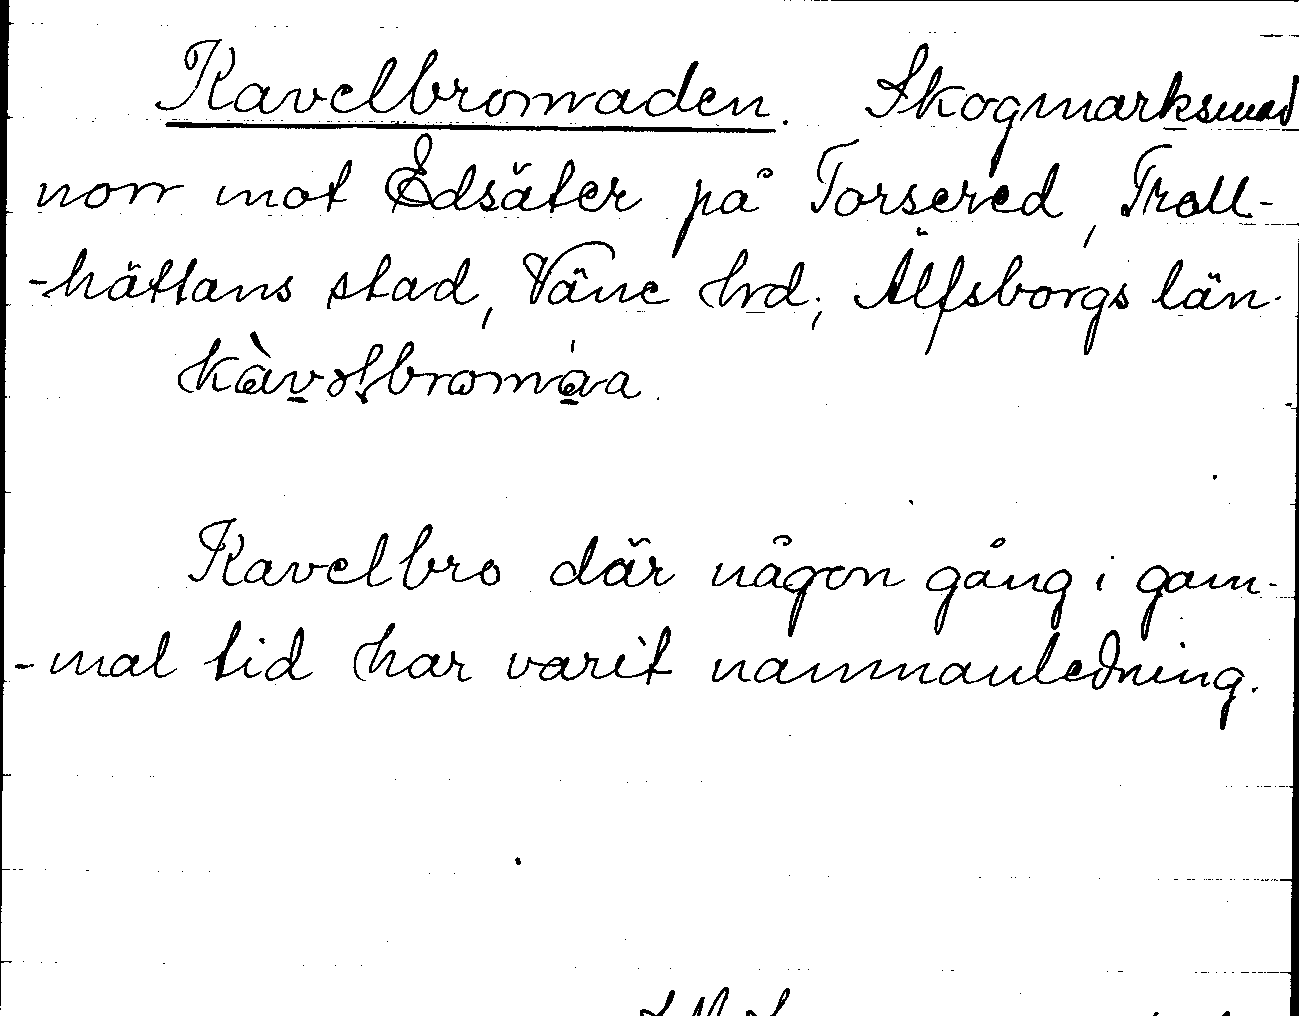 Kavelbromaden. Skogmarksmad
norr mot Edsäter på Torsered, Troll-
-hättans stad, Väne hrd, Älfsborgs län.
Kavelbro där någon gång i gam-
-mal tid har varit namnanledning.